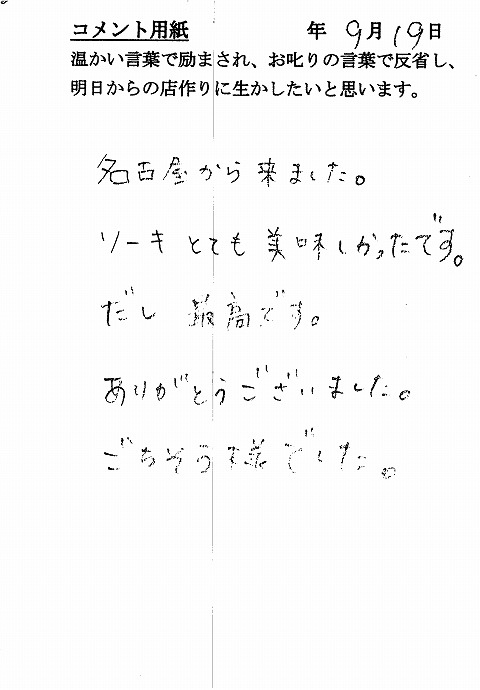 コメント用紙 年 9月19日
温かい言葉で励まされ、お叱りの言葉で反省し、
明日からの店作りに生かしたいと思います。
名古屋から来ました。
ソーキとても美味しかったです。
だし 最高です。
ありがとうございました。
ごちそう様でした。